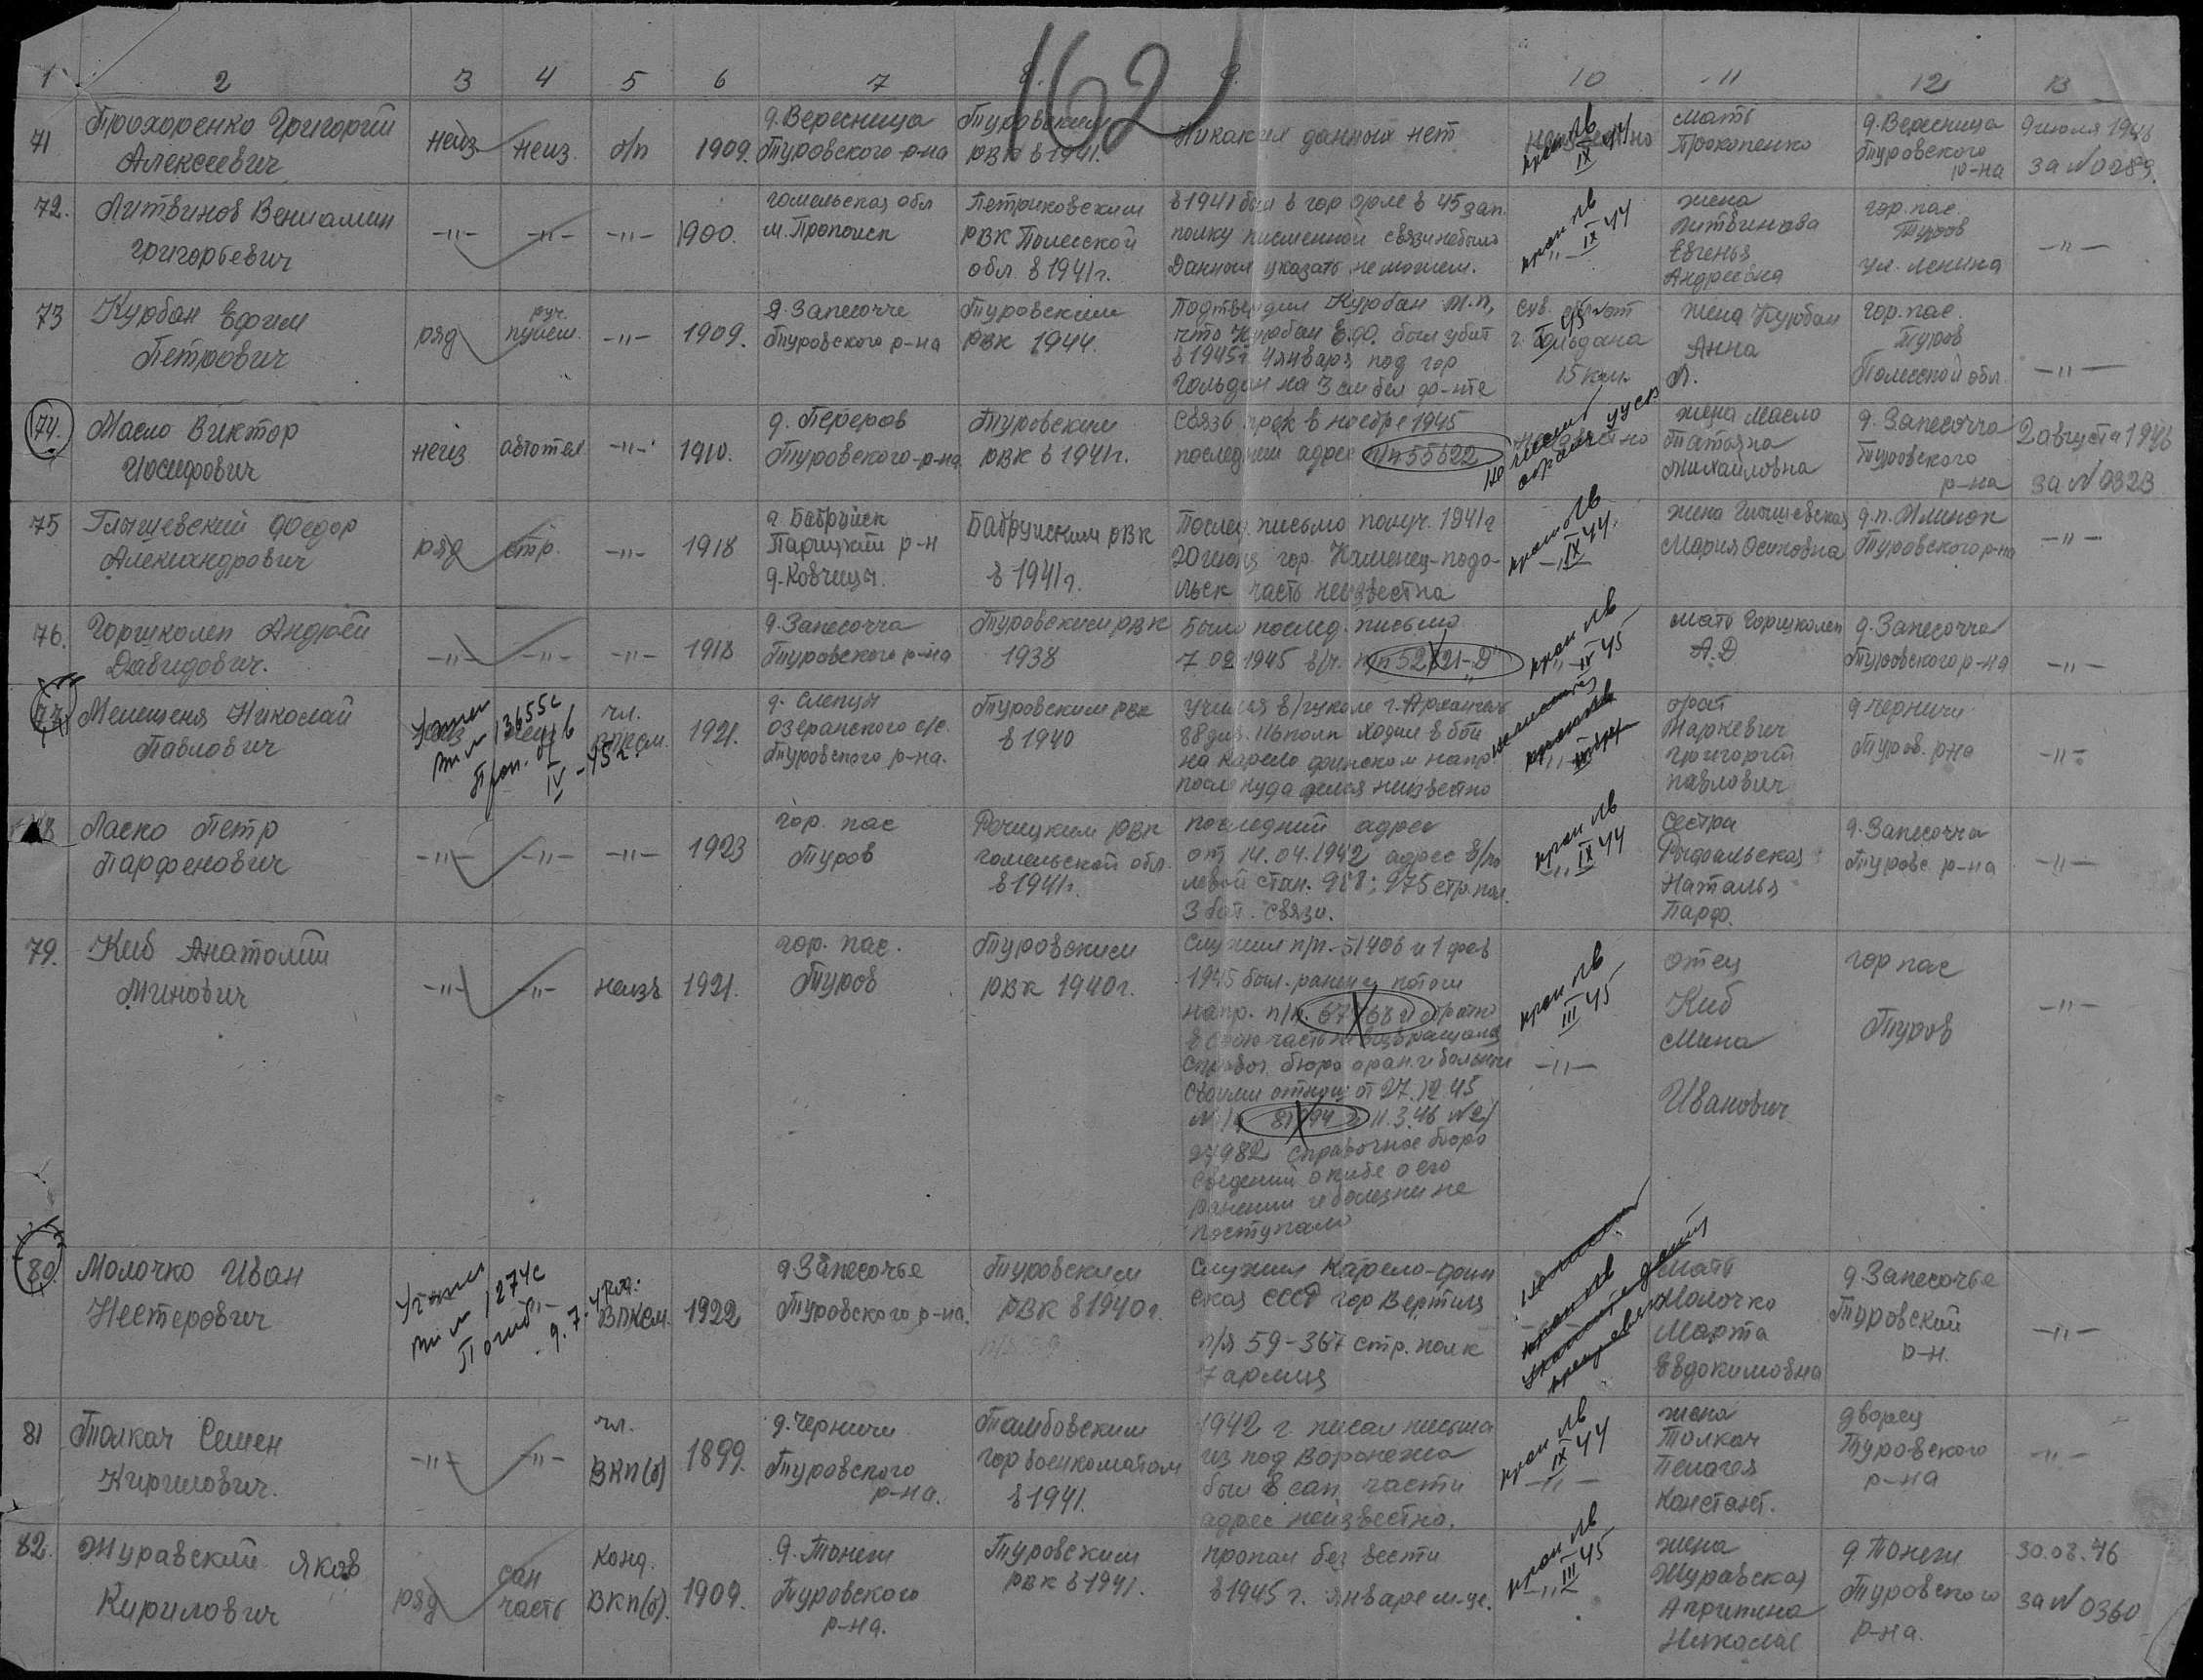 162
1 2 3 4 5 6 7 8. 9. 10 11 12 13
71 Прохоренко Григорий Алексеевич
неиз. неиз. б/п 1909.
д. Вересница
Туровского р-на
Туровским
РВК в 1941.
Никаких данных нет
проп ЛВ
IX 44
мать
Прохоренко
д. Вересница
Туровского
р-на
9 июля 1946
за № 0289.
72. Литвинов Вениамин
Григорьевич
-"- -"- -"- 1900.
гомельская обл
м. Пропойск
Петриковским
РВК Полесской
обл. в 1941 г.
в 1941 был в гор Орле в 45 зап.
полку писменной связи небыло
Данных указать не можем.
проп ЛВ
-"- IX 44
жена
Литвинова
Евгенья
Андреевна
гор. пос.
Туров
ул. Ленина
-"-
73 Курбан Ефим
Петрович
ряд
руч.
пулем.
-"- 1909.
д. Запесочче
Туровского р-на
Туровским
РВК 1944.
Подтвердил Курбан М.П,
что Курбан Е.П. был убит
в 1945 г 4 января под гор
Гольдап на 3 ем бел фр-нте
г. Гольдапа
15 клм.
жена Курбан
Анна
Л.
гор. пос.
Туров
Полесской обл.
-"-
74. Масло Виктор
Иосифович
неиз автомат -"- 1910.
д. Переров
Туровского р-на
Туровским
РВК в 1941 г.
связь прек в ноябре 1945
последний адрес п/п 55622
неизвестно
жена Масло
Татьяна
Михайловна
д. Запесочча
Туровского
р-на
2 августа 1946
за № 0323
75 Глышевский Федор
Александрович
ряд стр. -"- 1918
г. Бабруйск
Паричкий р-н
д. Ковчицы.
Бабруйским РВК
в 1941 г.
Послед. письмо получ. 1941 г
20 июня гор. Каменец-подо-
льск часть неизвестна
проп ЛВ
-"- IX 44.
жена Глышевская
Мария Осиповна
д.п. Млынок
Туровского р-на
-"-
76. Горшколеп Андрей
Давидович.
-"- -"- -"- 1918
д. Запесочча
Туровского р-на
Туровским РВК
1938
Было послед. письмо
7.02.1945 в/ч. п/п 52121-Д
проп ЛВ
-"- IV 45
мать Горшколеп
А.Д
д. Запесочча
Туровского р-на
-"-
77. Мелешеня Николай
Павлович
Учтен
13655с
Проп. б/в
IV-45 г.
чл.
ВЛКСМ.
1921.
д. Слепцы
Озеранского с/с.
Туровского р-на.
Туровским РВК
в 1940
учился в/школе г. Архангел
88 див. 116 полк ходил в бой
на Карело финском напр
после куда делся неизвестно
брат
Маркевич
Григорий
Павлович
д Черничи
Туров. р-на
-"-
78 Ласко Петр
Парфенович
-"- -"- -"- 1923
гор. пос
Туров
Речицким РВК
гомельской обл.
в 1941 г.
последний адрес
от 14.04.1942 адрес в/по
левой стан. 988; 975 стр. пол.
3 бат. связи.
проп ЛВ
-"- IX 44
сестра
Рыдальская
Наталья
Парф.
д. Запесочча
Туровс р-на
-"-
79. Киб Анатолий
Минович
-"- -"- неизв 1921.
гор. пос.
Туров
Туровским
РВК 1940 г.
Служил п/п. 51406 и 1 фев
1945 был. ранен и потом
напр. п/п. обратно
в свою часть не возвращался
справоч. бюро о ран. и больных
своими отнош. от 27.12.45
11.3.46 № 2/
27982 Справочное бюро
сведений о Кибе о его
ранении и болезни не
поступало
проп ЛВ
III 45
-"-
отец
Киб
Мина
Иванович
гор пос
Туров
-"-
80. Молочко Иван
Нестерович
Учтен
1274с
Погиб.
9.7.
чл.
ВЛКСМ. 1922
д. Запесочье
Туровского р-на.
Туровским
РВК в 1940 г.
Служил Карело-фин
ская СССР гор Вертиля
п/я 59-367 стр. полк
7 армия
мать
Молочко
Марта
Евдокимовна
д. Запесочье
Туровский
р-н.
-"-
81 Толкач Семен
Кирилович.
-"- -"-
чл.
ВКП(б) 1899.
д. Черничи
Туровского
р-на.
Тамбовским
горвоенкоматом
в 1941.
1942 г. писал письма
из под Воронежа
был в сан. части
адрес неизвестно.
проп ЛВ
IX 44
-"-
жена
Толкач
Пелагея
Констант.
дворец
Туровского
р-на
-"-
82. Журавский Яков
Кирилович
ряд
сан
часть
канд.
ВКП(б). 1909.
д. Тонеж
Туровского
р-на.
Туровским
РВК в 1941.
пропал без вести
в 1945 г. январе м-це.
проп ЛВ
-"- III 45
жена
Журавская
Агрипина
Николае
д Тонеж
Туровского
р-на.
30.08.46
за № 0360